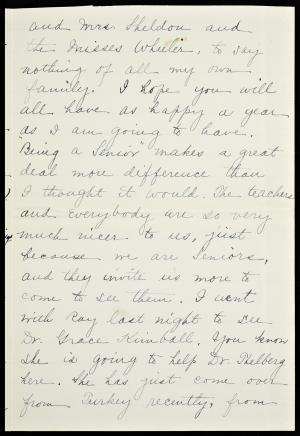 and Mrs. Sheldon and
the Misses Wheeler, to say
nothing of all my own
family. I hope you will
all have as happy a year
as I am going to have.
Being a Senior makes a great
deal more difference than
I thought it would. The teachers
and everybody are so very
much nicer to us, just
because we are Seniors,
and they invite us more to
come to see them. I went
with Ray last night to see
Dr. Grace Kimball. You know
she is going to help Dr. Thelberg
here. She has just come over
from Turkey recently, from